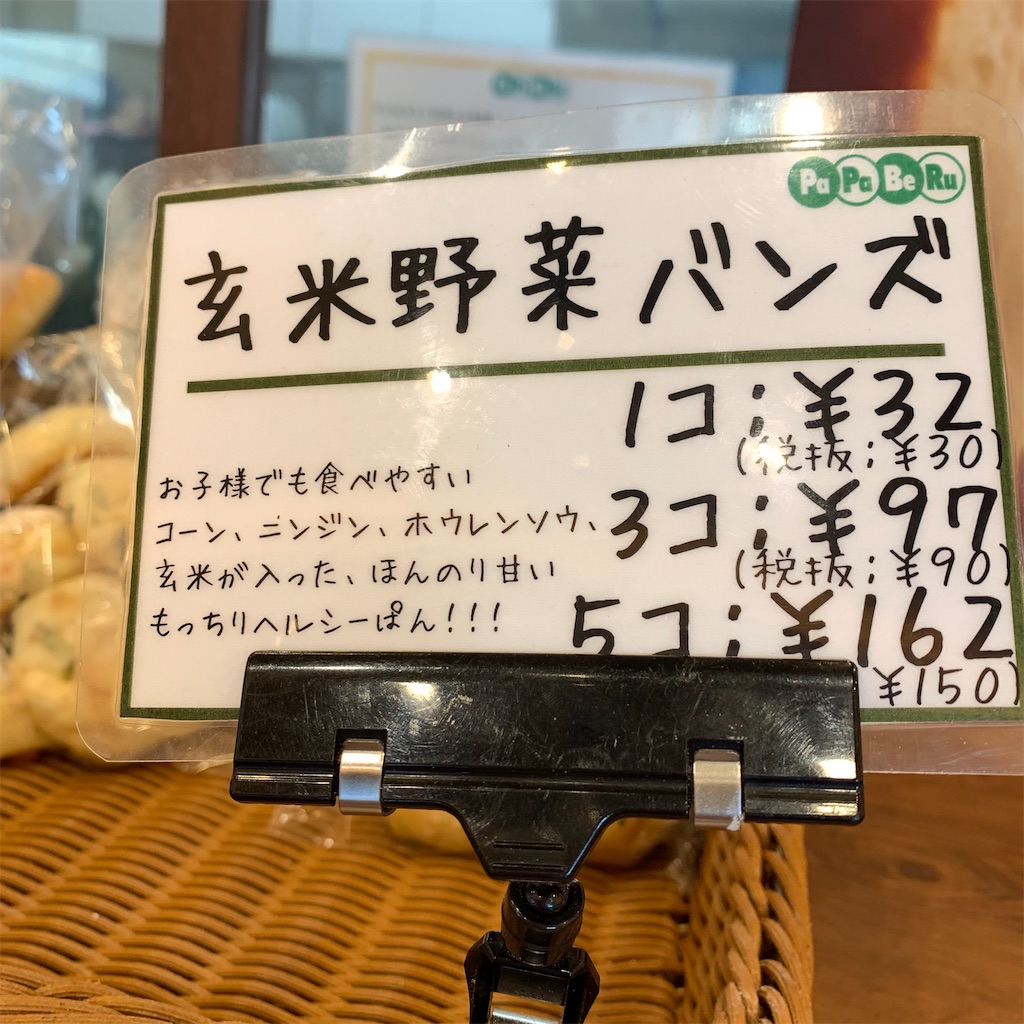 PaPaBeRu
玄米野菜バンズ
1コ:¥32
(税抜:¥30)
お子様でも食べやすい
コーン、ニンジン、ホウレンソウ、
玄米が入った、ほんのり甘い
もっちりヘルシーぱん!!!
3コ:¥97
(税抜:¥90)
5コ:¥162
¥150)